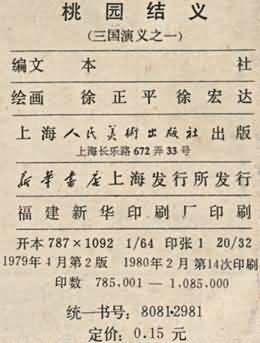 桃园结义
(三国演义之一)
编文 本 社
绘画 徐正平 徐宏达
上海人民美術出版社出版
上海长乐路672弄33号
新華書店上海发行所发行
福建新华印刷厂印刷
开本787×1092 1/64 印张1 20/32
1979年4月第2版 1980年2月第14次印刷
印数 785.001—1.085.000
统一书号:8081·2981
定价:0.15元